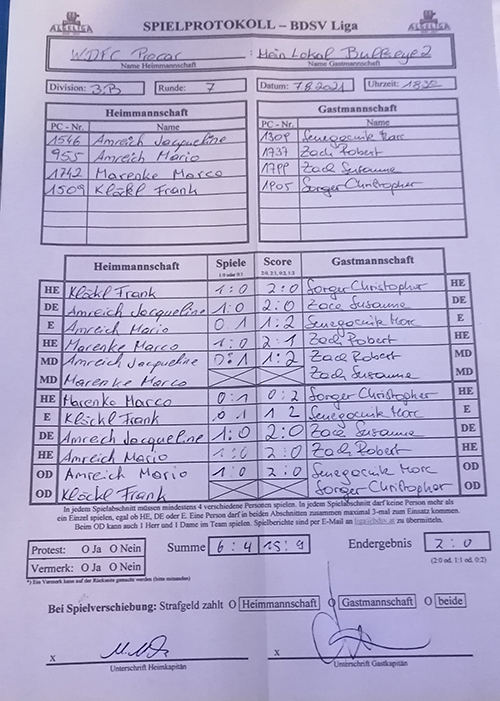 SPIELPROTOKOLL – BDSV Liga
WDFC Procar : Mein Lokal Bullseye 2
Name Heimmannschaft Name Gastmannschaft
Division: 3.B Runde: 7 Datum: 7.8.2021 Uhrzeit: 1830
Heimmannschaft Gastmannschaft
PC - Nr. Name PC - Nr. Name
1546 Amreich Jacqueline 1309 Senegacnik Marc
955 Amreich Mario 1737 Zach Robert
1742 Marenke Marco 1799 Zach Susanne
1509 Klöckl Frank 1905 Sorger Christopher
Heimmannschaft Spiele Score Gastmannschaft
1:0 oder 0:1 2:0, 2:1, 0:2, 1:2
HE Klöckl Frank 1:0 2:0 Sorger Christopher HE
DE Amreich Jacqueline 1:0 2:0 Zach Susanne DE
E Amreich Mario 0 1 1:2 Senegacnik Marc E
HE Marenke Marco 1:0 2:1 Zach Robert HE
MD Amreich Jacqueline 0:1 1:2 Zach Robert MD
MD Marenke Marco Zach Susanne MD
HE Marenke Marco 0:1 0:2 Sorger Christopher HE
E Klöckl Frank 0 1 1 2 Senegacnik Marc E
DE Amreich Jacqueline 1:0 2:0 Zach Susanne DE
HE Amreich Mario 1:0 2:0 Zach Robert HE
OD Amreich Mario 1:0 2:0 Senegacnik Marc OD
OD Klöckl Frank Sorger Christopher OD
In jedem Spielabschnitt müssen mindestens 4 verschiedene Personen spielen. In jedem Spielabschnitt darf keine Person mehr als
ein Einzel spielen, egal ob HE, DE oder E. Eine Person darf in beiden Abschnitten zusammen maximal 3-mal zum Einsatz kommen.
Beim OD kann auch 1 Herr und 1 Dame im Team spielen. Spielberichte sind per E-Mail an zu übermitteln.
Protest: O Ja O Nein Summe 6 : 4 15 : 9 Endergebnis 2 : 0
Vermerk: O Ja O Nein (2:0 od. 1:1 od. 0:2)
*) Ein Vermerk kann auf der Rückseite gemacht werden (bitte ankreuzen)
Bei Spielverschiebung: Strafgeld zahlt O Heimmannschaft O Gastmannschaft O beide
x x
Unterschrift Heimkapitän Unterschrift Gastkapitän